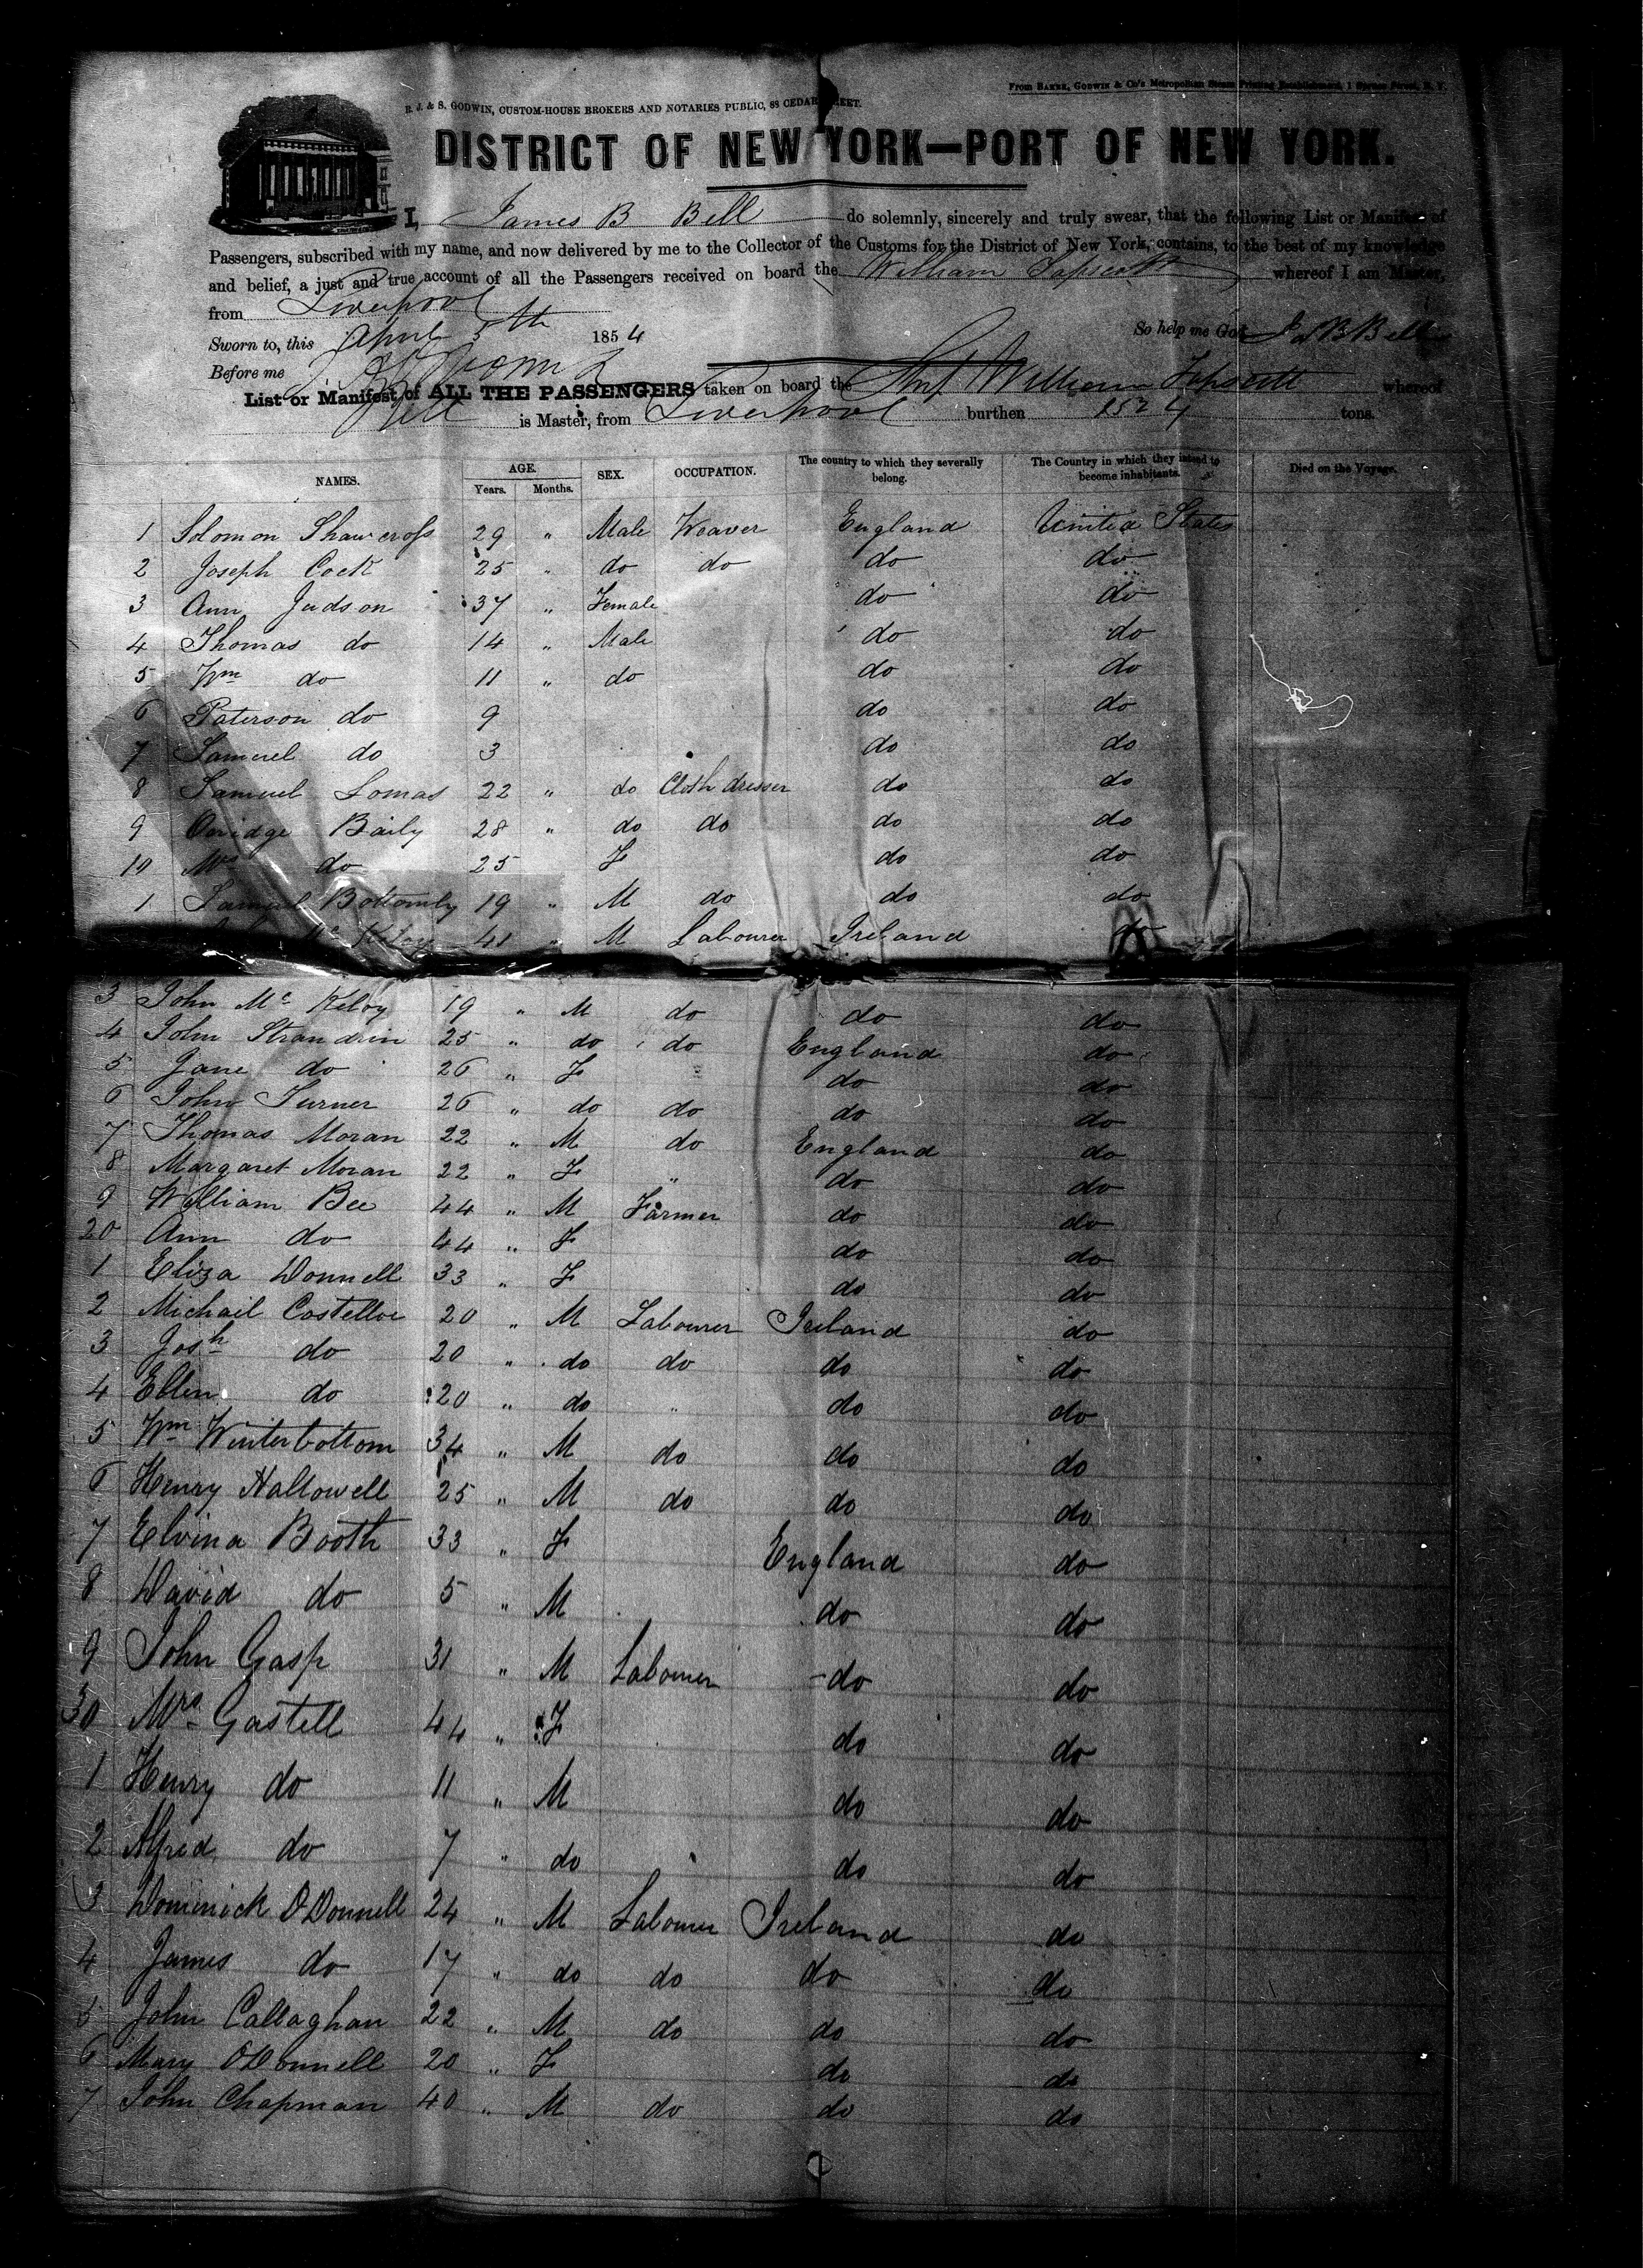 From BAKER, GODWIN & Co's Metropolitan Steam Printing Establishment, 1 Spruce Street, N. Y.
B. J. & S. GODWIN, CUSTOM-HOUSE BROKERS AND NOTARIES PUBLIC, 88 CEDAR STREET.
DISTRICT OF NEW YORK—PORT OF NEW YORK.
I, James B Bell do solemnly, sincerely and truly swear, that the following List or Manifest of
Passengers, subscribed with my name, and now delivered by me to the Collector of the Customs for the District of New York, contains, to the best of my knowledge
and belief, a just and true account of all the Passengers received on board the William Tapscott whereof I am Master,
from Liverpool
Sworn to, this April 5th 1854 So help me God Jas B Bell
Before me
List or Manifest of ALL THE PASSENGERS taken on board the Ship William Tapscott whereof
Bell is Master, from Liverpool burthen 1524 tons.
NAMES. AGE. Years. Months. SEX. OCCUPATION. The country to which they severally belong. The Country in which they intend to become inhabitants. Died on the Voyage.
1 Solomon Shawcross 29 " Male Weaver England United States
2 Joseph Cock 25 " do do do do
3 Ann Judson 37 " Female do do
4 Thomas do 14 " Male do do
5 Wm do 11 " do do do
6 Paterson do 9 do do
7 Samuel do 3 do do
8 Samuel Lomas 22 " do Cloth dresser do do
9 Baily 28 " do do do do
10 Mrs do 25 F do do
1 Samuel Bottomly 19 " M do do do
Mc Kiloy 41 " M Labourer Ireland do
3 John Mc Kiloy 19 " M do do do
4 John Strandrin 25 " do do England do
5 Jane do 26 " F do do
6 John Turner 26 " do do do do
7 Thomas Moran 22 " M do England do
8 Margaret Moran 22 " F " do do
9 William Bee 44 " M Farmer do do
20 Ann do 44 " F do do
1 Eliza Donnell 33 " F do do
2 Michail Costelloe 20 " M Labourer Ireland do
3 Josh do 20 " do do do do
4 Ellen do 20 " do " do do
5 Wm Winterbottom 34 " M do do do
6 Henry Hallowell 25 " M do do do
7 Elvina Booth 33 " F England do
8 David do 5 " M do do
9 John Gasp 31 " M Labourer do do
30 Mrs Gastell 44 " F do do
1 Henry do 11 " M do do
2 Alfred do 7 " do do do
3 Dominick O Donnell 24 " M Labourer Ireland do
4 James do 17 " do do do do
5 John Callaghan 22 " M do do do
6 Mary O Donnell 20 " F do do
7 John Chapman 40 " M do do do